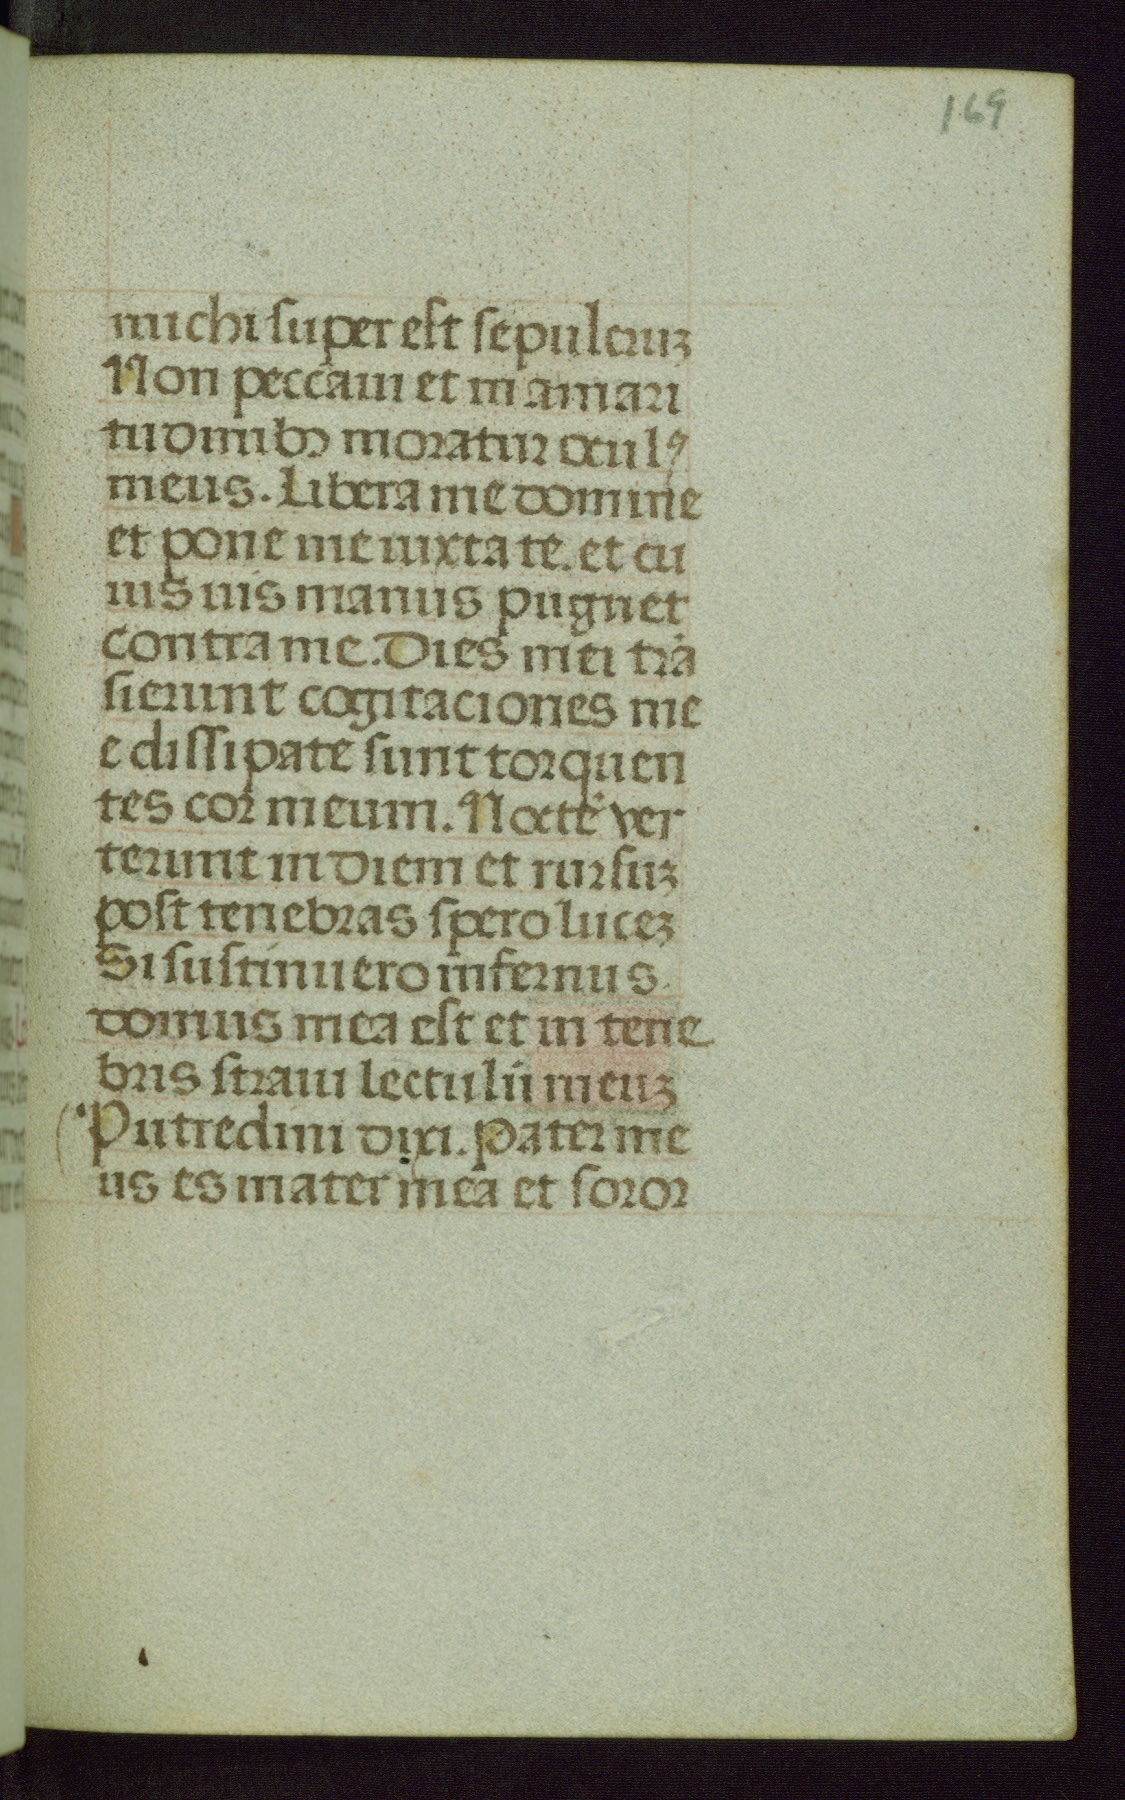 169
michi super est sepulcruʒ
Non peccaui et in amari
tudinibꝫ moratur oculꝰ
meus. Libera me domine
et pone me iuxta te. et cu
ius uis manus pugnet
contra me. Dies mei trã
sierunt cogitaciones me
e dissipate sunt torquen
tes cor meum. Noctē ver
terunt in diem et rursuʒ
post tenebras spero luceʒ
Si sustinuero infernus
domus mea est et in tene
bris straui lectulū meuʒ
Putredini dixi. Pater me
us es mater mea et soror